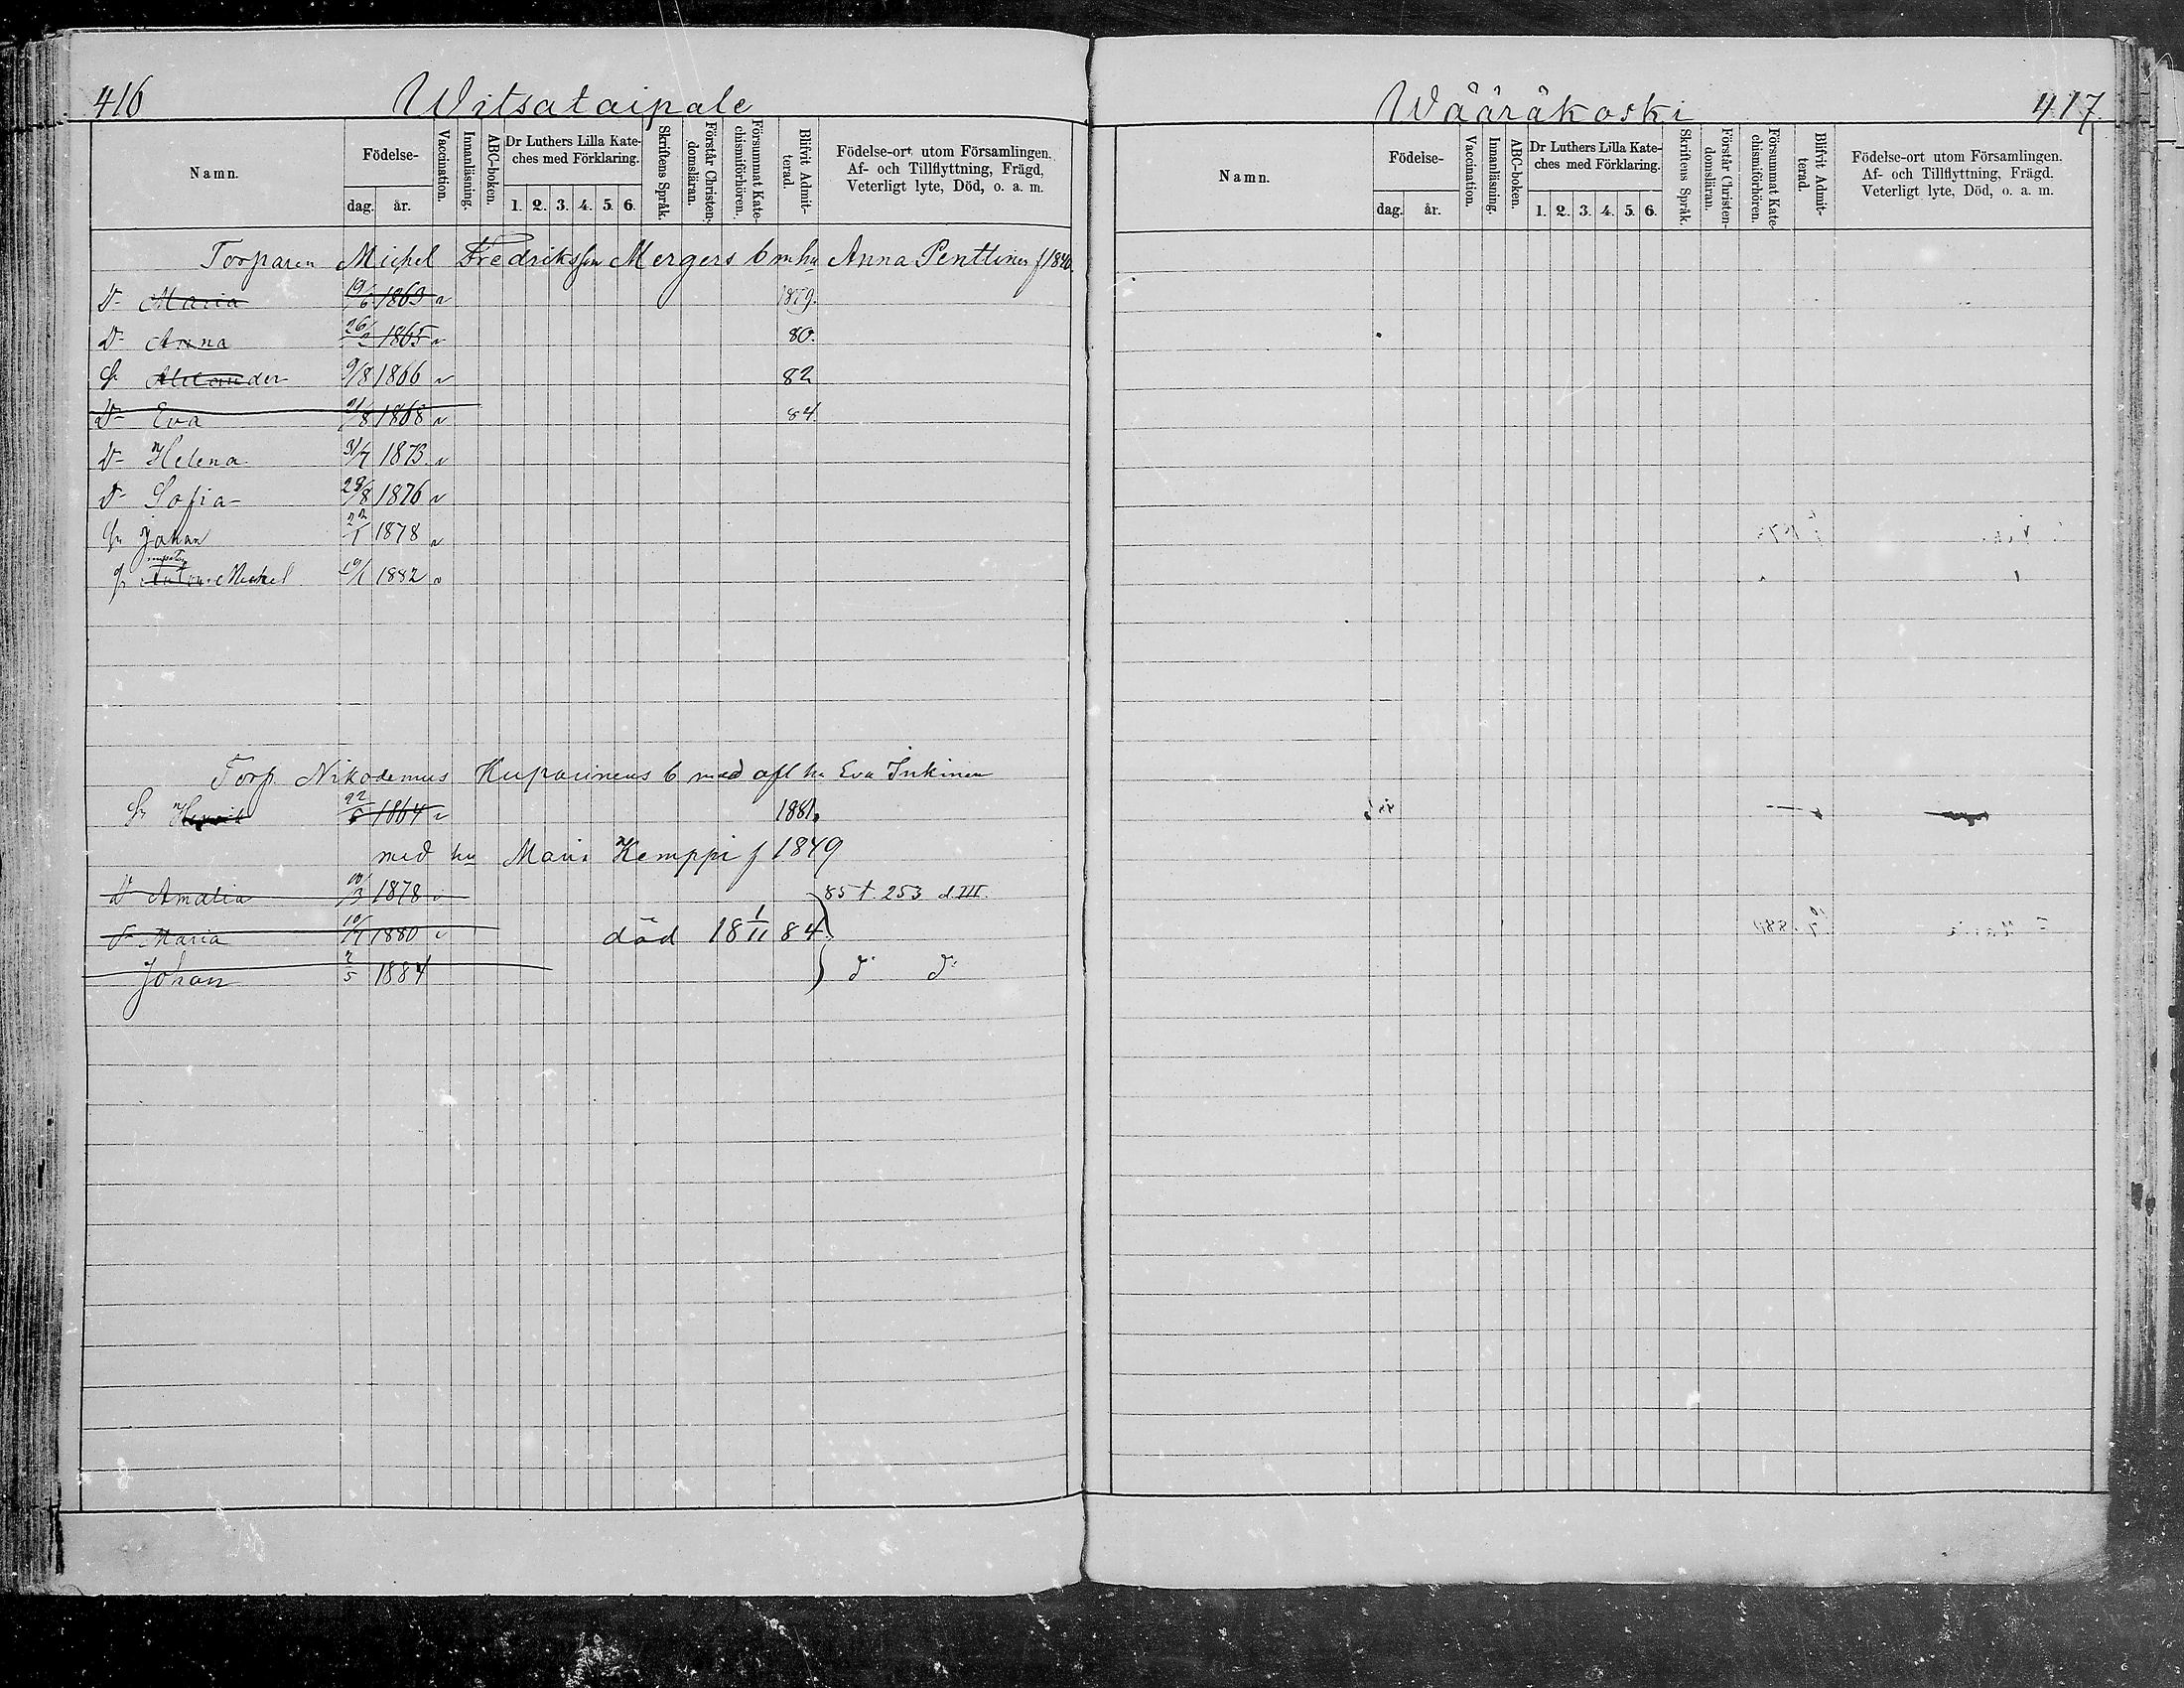 416 Witsataipale
Namn. Födelse- dag. år. Vaccination. Innanläsning. ABC-boken. Dr Luthers Lilla Kateches med Förklaring. 1. 2. 3. 4. 5. 6. Skriftens Språk. Förstår Christendomsläran. Försummat Katechismiförhören. Blifvit Admitterad. Födelse-ort utom Församlingen. Af- och Tillflyttning, Frägd, Veterligt lyte, Död, o. a. m.
Torparen Michel Fredriksson Mergers b m hu Anna Penttinen f 1840
Dr Maria 19/6 1863 v 1879.
Dr Anna 26/2 1865 v 80.
Sn Alexander 9/8 1866 v 82
Dr Eva 21/8 1868 v 84.
Dr Helena 31/7 1873 v
Dr Sofia 29/8 1876 v
Sn Johan 22/1 1878 v
Sn Michel 19/1 1882 v
Torp. Nikodemus Kuparinens b med afl hu Eva Inkinen
Sn Henrik 22/5 1864 v 1881.
med hu Maria Kemppi f 1849
Dr Amalia 10/3 1878 v 85 t. 253 d. III.
Dr Maria 10/7 1880 v död 18 1/11 84
Johan 2/5 1884 d: d:
Wääräkoski 417.
Namn. Födelse- dag. år. Vaccination. Innanläsning. ABC-boken. Dr Luthers Lilla Kateches med Förklaring. 1. 2. 3. 4. 5. 6. Skriftens Språk. Förstår Christendomsläran. Försummat Katechismiförhören. Blifvit Admitterad. Födelse-ort utom Församlingen. Af- och Tillflyttning, Frägd. Veterligt lyte, Död, o. a. m.